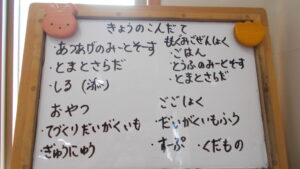 きょうのこんだて
・あつあげのみーとそーす
・とまとさらだ
・しる(
おやつ
・てづくりだいがくいも
・ぎゅうにゅう
ごぜんしょく
・ごはん
・とうふのみーとそーす
・とまとさらだ
ごごしょく
・だいがくいもふう
・すーぷ ・くだもの